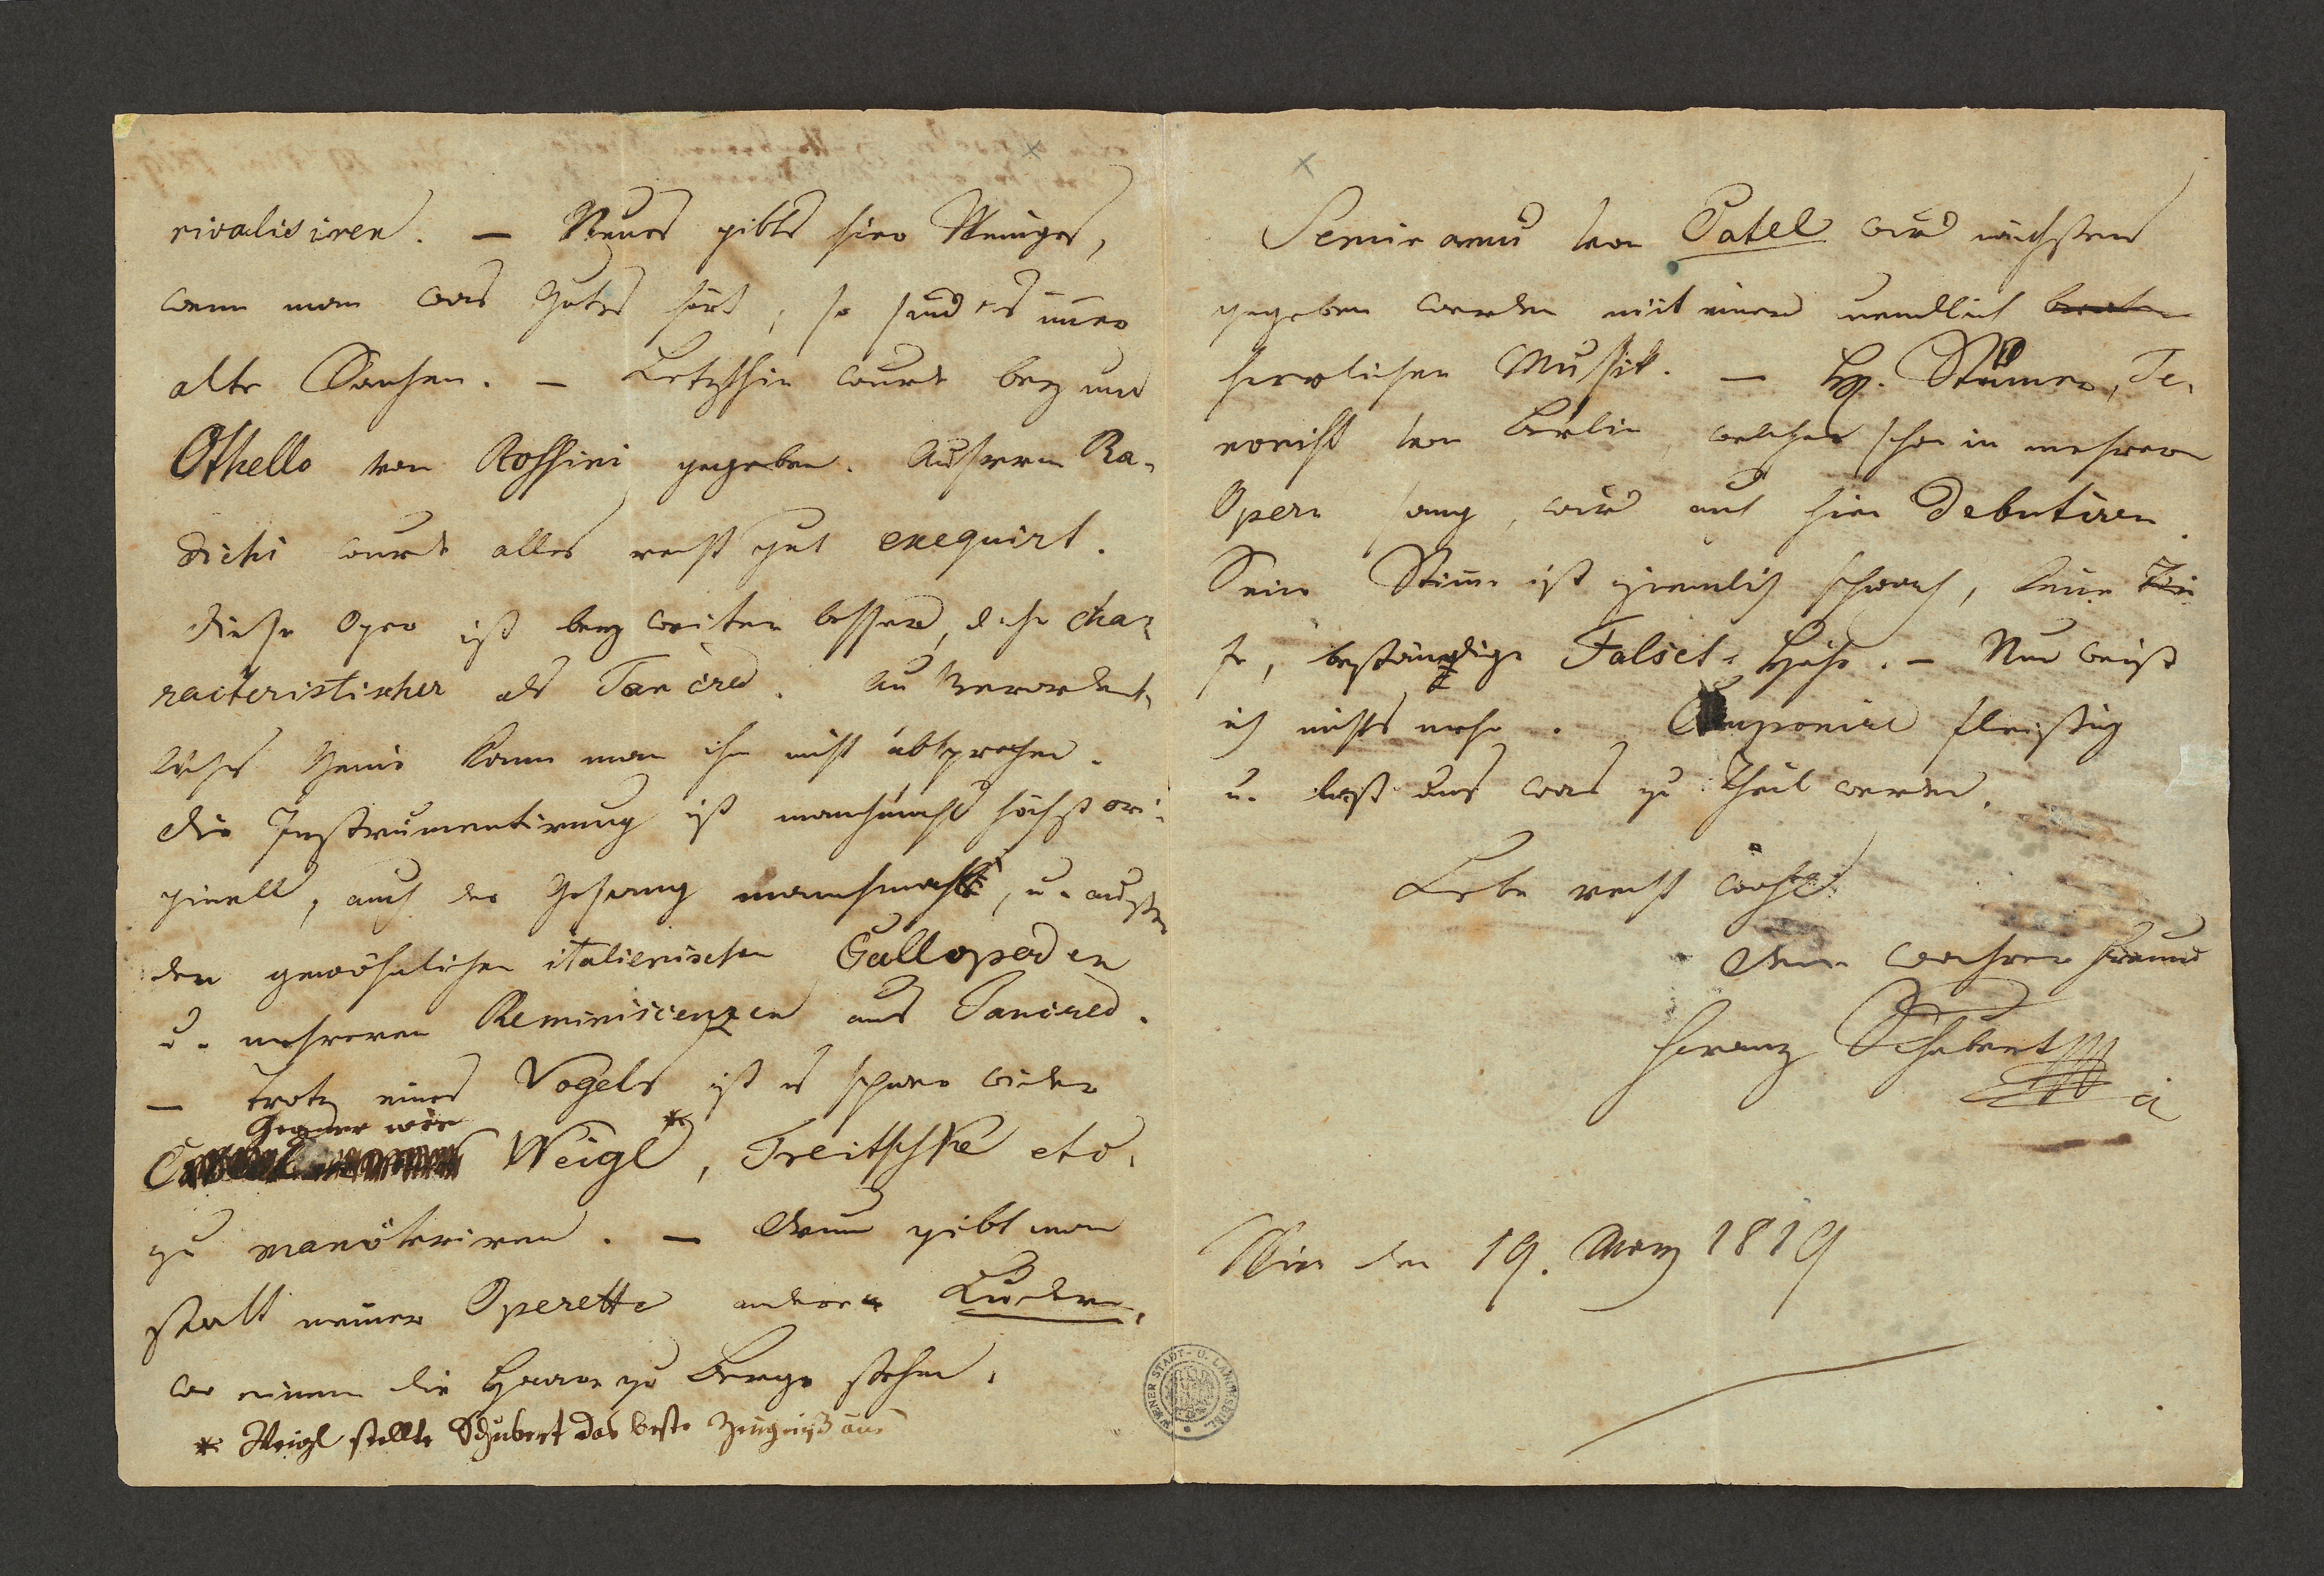 rivalisiren. — Neues gibts hier Weniges,
wenn man was Gutes hört, so sind es immer
alte Sachen. — Letzthin wurde bey uns
Othello von Rossini gegeben. Außerm Ra-
dichi wurde alles recht gut exequirt.
Diese Oper ist bey weiten besser, d. h. cha-
racteristischer als Tancred. Außerordent-
liches Genie kann man ihm nicht absprechen.
Die Instrumentirung ist manchmahl höchst ori-
ginell, auch der Gesang manchmahl, u. außer
den gewöhnlichen italienischen Gallopaden
u. mehreren Reminiscenzen aus Tancred.
— Trotz eines Vogels ist es schwer wider
Gegner wie
Weigl*, Treitschke etc.
zu manövriren. — Drum gibt man
statt meiner Operette andere Luder,
wo einem die Haare zu Berge stehen.
* Weigl stellte Schubert das beste Zeugniß aus
Semiramis von Catel wird nächstens
gegeben werden mit einer unendlich
herrlichen Mussik. — H. Stümer, Te-
norist von Berlin, welcher schon in mehrern
Opern sang, wird auch hier debutiren.
Seine Stimme ist ziemlich schwach, keine Tie-
fe, beständige Falset-Höhe. — Nun weiß
ich nichts mehr. Componire fleißig
u. laß uns was zu Theil werden.
Lebe recht wohl!
Dein wahrer Freund
Franz Schubert
Wien den 19. May 1819
WIENER STADT- U. LANDESBIBL.